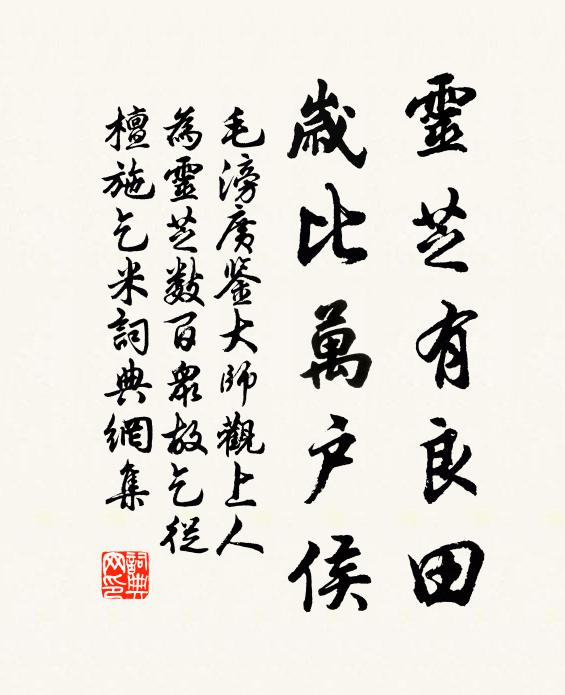 靈芝有良田
歲比萬户侯
毛滂廣鑒大師觀上人
為靈芝數百眾故乞從
檀施乞米詞典網集
詞典網印